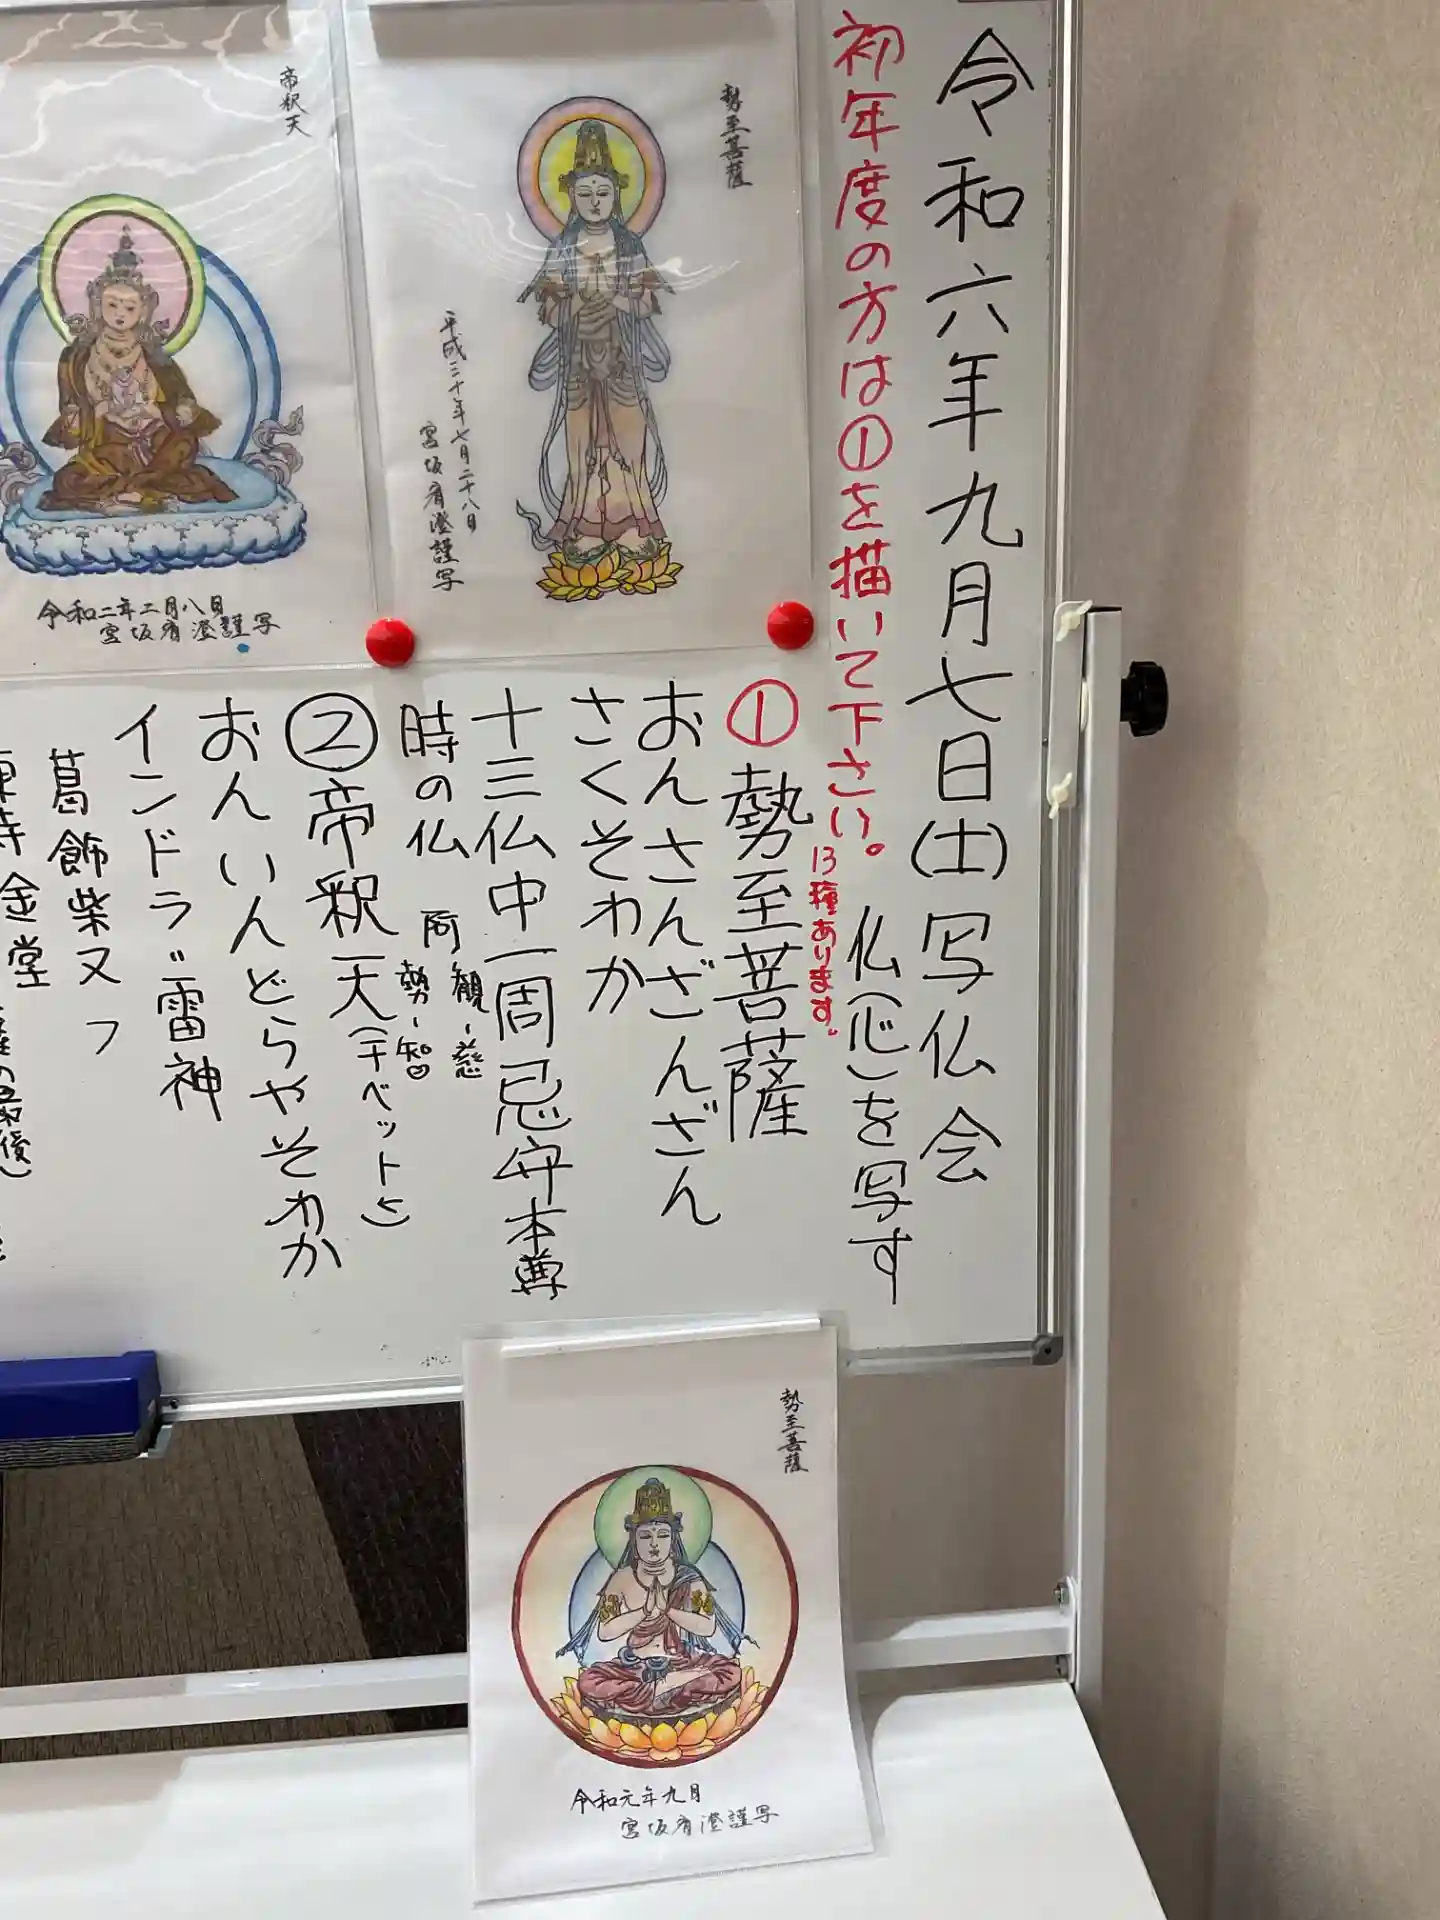 令和六年九月七日(土)写仏会
仏(心)を写す
初年度の方は①を描いて下さい。
13種あります。
①勢至菩薩
おんさんざんざんざん
さくそわか
十三仏中一周忌守本尊
時の仏
阿
観-慈
勢-知
②帝釈天(チベット)
おんいんどらやそわか
インドラ"雷神
葛飾柴又
金堂
勢至菩薩
平成三十年七月二十八日
宮坂宥澄謹写
帝釈天
令和二年二月八日
宮坂宥澄謹写
勢至菩薩
令和元年九月
宮坂宥澄謹写